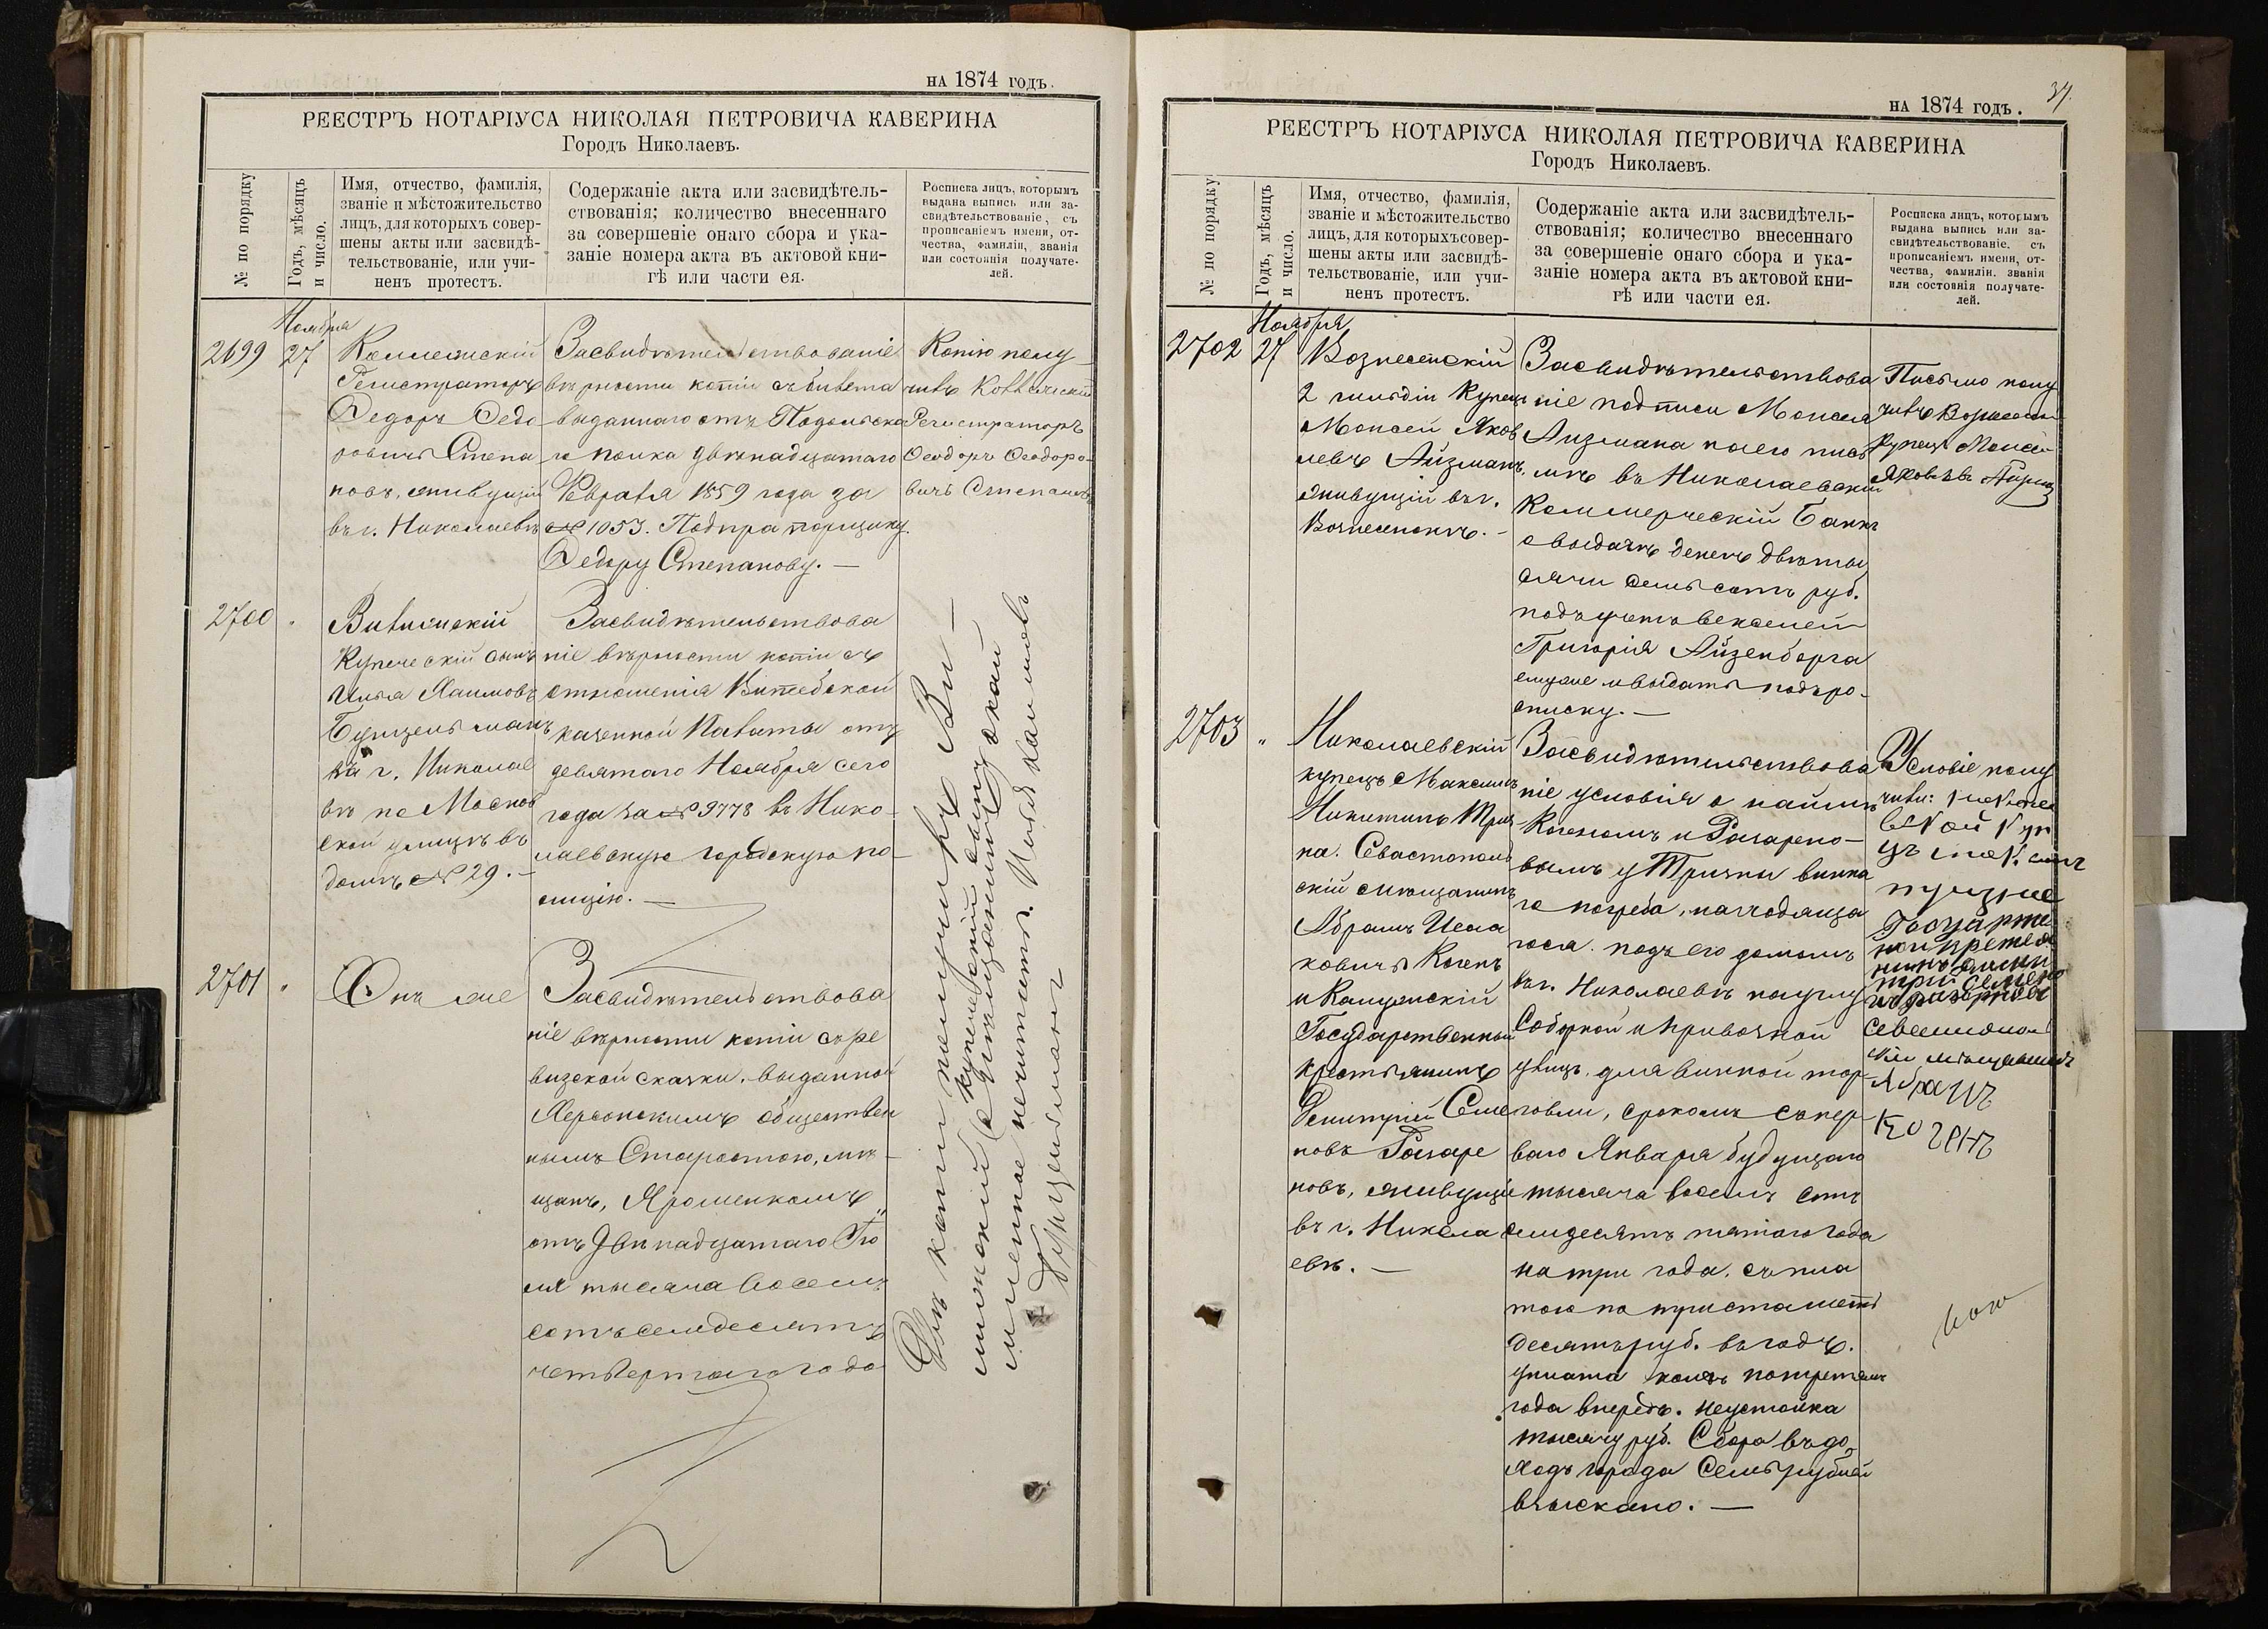 НА 1874 ГОДЪ.
РЕЕСТРЪ НОТАРІУСА НИКОЛАЯ ПЕТРОВИЧА КАВЕРИНА
Городъ Николаевъ.
№ по порядку
Годъ, мѣсяцъ
и число.
Имя, отчество, фамилія,
званіе и мѣстожительство
лицъ, для которыхъ совер-
шены акты или засвидѣ-
тельствованіе, или учи-
ненъ протестъ.
Содержаніе акта или засвидѣтель-
ствованія; количество внесеннаго
за совершеніе онаго сбора и ука-
заніе номера акта въ актовой кни-
гѣ или части ея.
Росписка лицъ, которымъ
выдана выпись или за-
свидѣтельствованіе, съ
прописаніемъ имени, от-
чества, фамиліи, званія
или состоянія получате-
лей.
Ноября
2699 27
Коллежскій
Регистраторъ
Федоръ Федо
ровичъ Степа
новъ, живущій
въ г. Николаевѣ
Засвидѣтельствованіе
вѣрности копіи съ билета
выданнаго отъ Подольска
го полка двѣнадцатаго
Февраля 1859 года за
№ 1053. Подпрапорщику
Федору Степанову. —
Копію полу
чилъ Коллежскій
Регистраторъ
Феодоръ Феодоро-
вичъ Степановъ
2700 "
Купеческій сынъ
Илья Хаимовъ
Бурцельманъ
въ г. Николае
вѣ по Москов
ской улицѣ въ
домѣ № 29. –
Засвидѣтельствова
ніе вѣрности копіи съ
отношенія Витебской
казенной Палаты отъ
девятаго Ноября сего
года за № 9778 въ Нико-
лаевскую городскую по-
лицію. —
2701 "
Онъ же
Засвидѣтельствова
ніе вѣрности копіи съ ре
визской сказки, выданной
Херсонскимъ обществен
нымъ Старостою, мѣ-
щанъ, Ярошенкомъ
отъ Двѣнадцатаго Ію
ля тысяча восемь
сотъ семьдесятъ
четвертаго года
Двѣ копіи получилъ
купеческій сынъ
Бурцельманъ
НА 1874 ГОДЪ.
РЕЕСТРЪ НОТАРІУСА НИКОЛАЯ ПЕТРОВИЧА КАВЕРИНА
Городъ Николаевъ.
№ по порядку
Годъ, мѣсяцъ
и число.
Имя, отчество, фамилія,
званіе и мѣстожительство
лицъ, для которыхъ совер-
шены акты или засвидѣ-
тельствованіе, или учи-
ненъ протестъ.
Содержаніе акта или засвидѣтель-
ствованія; количество внесеннаго
за совершеніе онаго сбора и ука-
заніе номера акта въ актовой кни-
гѣ или части ея.
Росписка лицъ, которымъ
выдана выпись или за-
свидѣтельствованіе, съ
прописаніемъ имени, от-
чества, фамиліи, званія
или состоянія получате-
лей.
Ноября
2702 27
Вознесенскій
2 гильдіи Купецъ
Моисей Яков
левъ Айзманъ,
живущій въ г.
Вознесенскѣ. –
Засвидѣтельствова
ніе подписи Моисея
Айзмана на его пись
мѣ въ Николаевскій
Коммерческій Банкъ
о выдачѣ денегъ двѣ ты
сячи семьсотъ руб.
подъ учетъ векселей
Григорія Айзенборга
ему же и выдать подъ ро-
списку. —
Письмо полу
чилъ Вознесен
Купецъ Моисей
Яковлевъ
2703 "
Николаевскій
купецъ Максимъ
Никитинъ Трич
ка. Севастополь
скій мѣщанинъ
Абрамъ Исаа
ковичъ Когенъ
Государственный
крестьянинъ
Дмитрій Семе
новъ
новъ, живущіе
въ г. Никола
евѣ. —
Засвидѣтельствова
ніе условія о наймѣ
Когеномъ и
вымъ у Трички винна
го погреба, находяща
гося подъ его домомъ
въ г. Николаевѣ на углу
Соборной и Привозной
улицъ, для винной тор
говли, срокомъ съ пер
ваго Января будущаго
тысяча восемь сотъ
семдесятъ пятаго года
на три года, съ пла
тою по триста шесть
десятъ руб. въ годъ.
уплата коихъ по третямъ
года впередъ. Неустойка
тысячу руб. Сбора въ до
ходъ города Семь рублей
взыскано. —
Условіе полу
чили:
Абрамъ
Когенъ